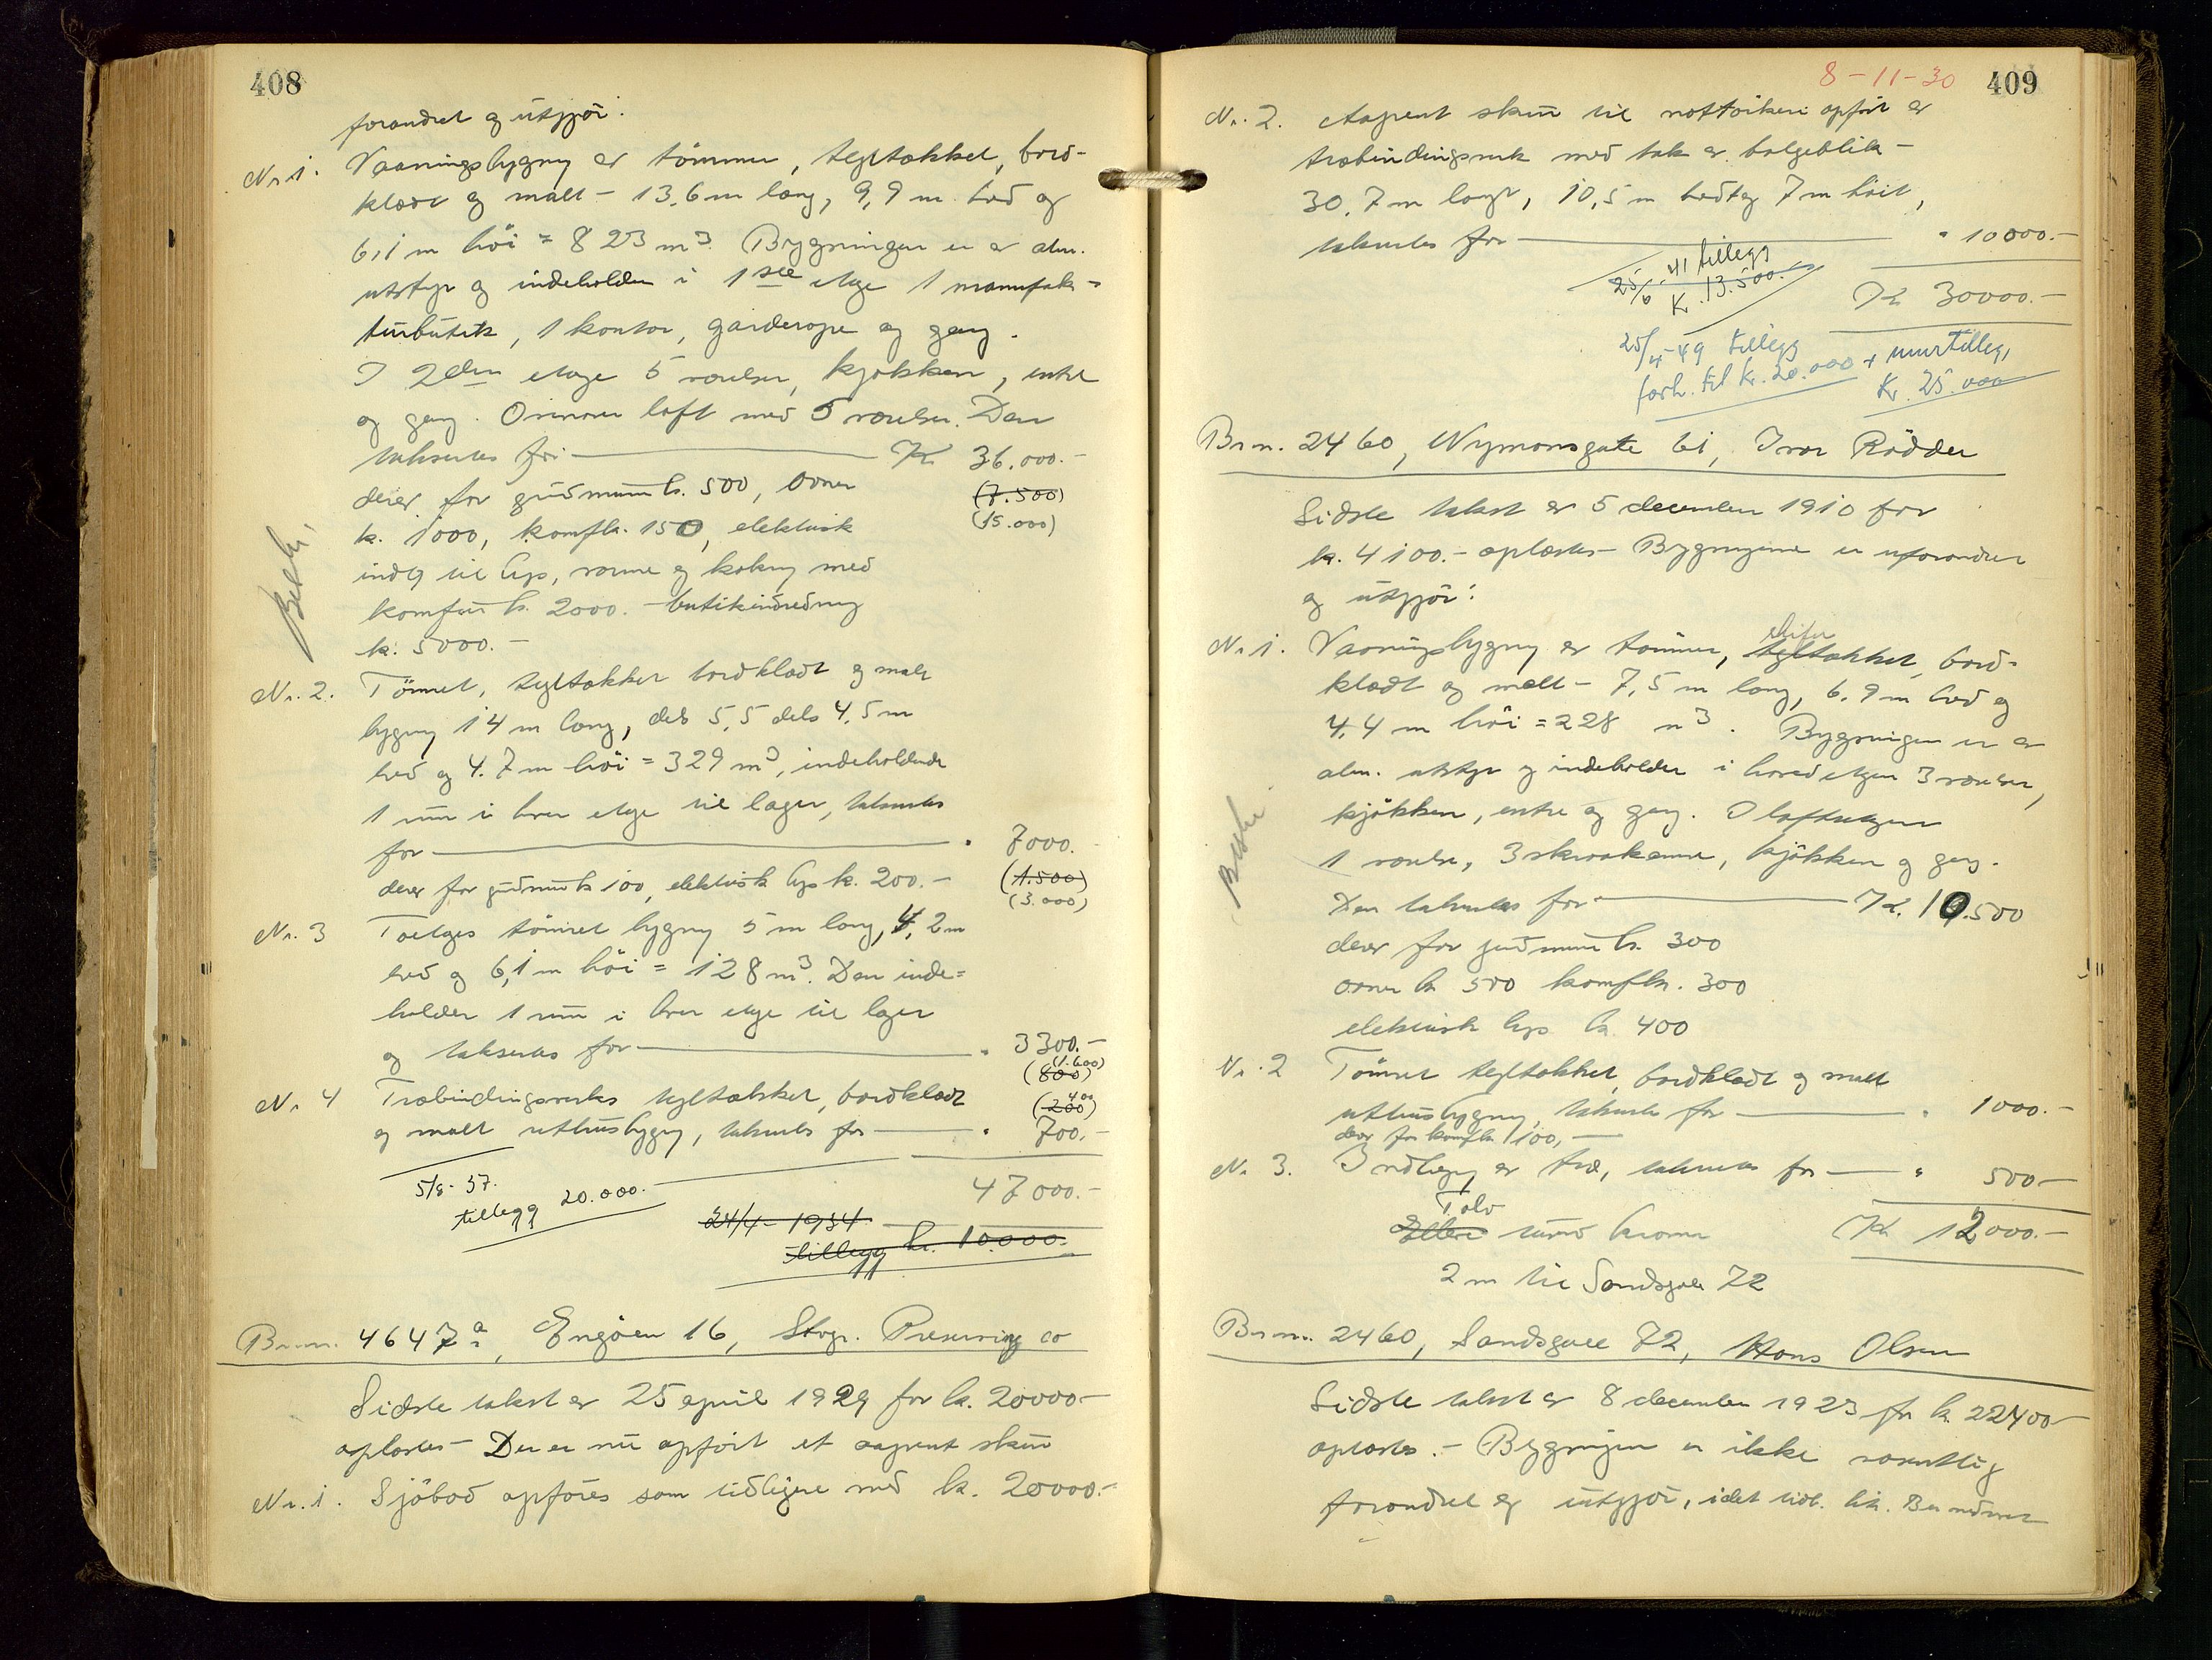 408
forandret og utgjør:
Nr. 1. Vaaningsbygng av tømmer, tegltækket, bord-
klædt og malt - 13,6 m lang, 9,9 m bred og
6,1 m høi = 823 m³. Bygningen er av alm.
utstyr og indeholder i 1ste etage 1 manufak-
turbutik, 1 kontor, garderope og gang.
I 2den etage 5 værelser, kjøkken, entre
og gang. Ovenover loft med 5 værelser. Den
takseres for Kr. 36.000.-
derav for grundmur kr. 500, ovner (7.500)
kr. 1000, komfkr. 150, elektrisk (15.000)
indlg til lys, varme og kokning med
komfur kr. 2000. - butikindredning
kr. 5000.-
Nr. 2. Tømret, tegltækket bordklædt og malt
bygng 14 m lang, dels 5,5 dels 4,5 m
bred og 4.7 m høi = 329 m³, indeholdende
1 rum i hver etage til lager, takseres
for " 7000.-
derav for grundmur kr 100, elektrisk lys kr. 200.- (1.500)
(3.000)
Nr. 3 Toetages tømret bygng 5 m lang, 4,2 m
bred og 6,1 m høi = 128 m³. Den inde=
holder 1 rum i hver etage til lager
og takseres for " 3300.-
(1.600)
(800)
Nr. 4 Træbindingsverks tegltækket, bordklædt (200) 400
og malt uthusbygng, takseres for " 700.-
47000.-
5/8-37.
tillegg 20.000.-
24/4-1934.
tillegg kr. 10000.-
Brnr. 4647a, Engøen 16, Stvgr. Preserving co
Sidste takst er 25 april 1929 for kr. 20000.-
oplæstes - Der er nu opført et aapent skur
Nr. 1. Sjøbod opføres som tidligere med kr. 20000.-
8-11-30 409
Nr. 2. Aapent skur til nottørkeri opført av
træbindingsverk med tak av bølgeblik -
30.7 m langt, 10,5 m bredt og 7 m høit,
takseres for " 10000.-
25/6-41 tillegg
Kr. 13.500.-
Kr 30000.-
25/4-49 tillegg
forh. til kr. 20.000 + murtillegg
Kr. 25.000
Brnr. 2460, Nymansgate 61, Ivar Rödder
Sidste takst av 5 december 1910 for
kr. 4100.- oplæstes - Bygningene er uforandret
og utgjør:
skifer
Nr. 1. Vaaningsbygng av tømmer, tegltækket, bord-
klædt og malt - 7,5 m lang, 6.9 m bred og
4,4 m høi = 228 m³. Bygningen er av
alm. utstyr og indeholder i hovedetagen 3 værelser,
kjøkken, entre og gang. I loftsetagen
1 værelse, 3 skraakamre, kjøkken og gang.
Den takseres for Kr. 10.500
derav for grundmur kr. 300
ovner kr 500 komfkr. 300
elektrisk lys kr. 400
Nr. 2 Tømret tegltækket, bordklædt og malt
uthusbygng, takseres for " 1000.-
derav for komfkr 100,-
Nr. 3. Indhegng av træ, takseres for " 500-
Tolv
Elleve tusind kroner Kr 12000.-
2 m til Sandsgate 72
Brnr. 2460, Sandsgate 72, Hans Olsen
Sidste takst av 8 december 1923 for kr. 22400-
oplæstes. - Bygningen er ikke væsentlig
forandret og utgjør, idet tidl.